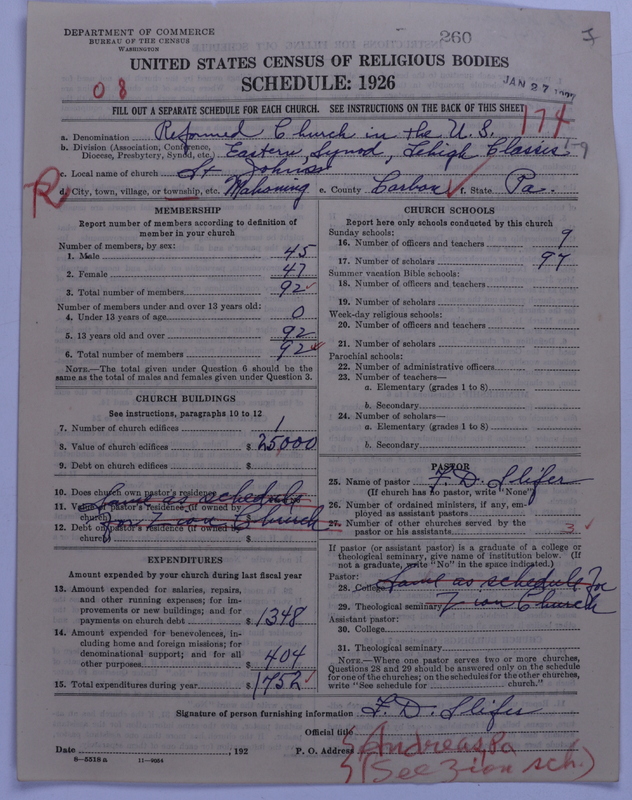 DEPARTMENT OF COMMERCE
BUREAU OF THE CENSUS
WASHINGTON
260
UNITED STATES CENSUS OF RELIGIOUS BODIES
SCHEDULE: 1926
08
JAN 27 1927
FILL OUT A SEPARATE SCHEDULE FOR EACH CHURCH. SEE INSTRUCTIONS ON THE BACK OF THIS SHEET
174
a. Denomination Reformed Church in the U.S.
b. Division (Association, Conference, Diocese, Presbytery, Synod, etc.) Eastern Synod, Lehigh Classis 59
c. Local name of church St Johns
R d. City, town, village, or township, etc. Mahoning e. County Carbon f. State Pa.
MEMBERSHIP
Report number of members according to definition of member in your church
Number of members, by sex:
1. Male 45
2. Female 47
3. Total number of members 92
Number of members under and over 13 years old:
4. Under 13 years of age 0
5. 13 years old and over 92
6. Total number of members 92
NOTE.—The total given under Question 6 should be the same as the total of males and females given under Question 3.
CHURCH BUILDINGS
See instructions, paragraphs 10 to 12
7. Number of church edifices 1
8. Value of church edifices $ 25000
9. Debt on church edifices $
10. Does church own pastor's residence
11. Value of pastor's residence (if owned by church) $
12. Debt on pastor's residence (if owned by church) $
Same as schedule
for Zion Church
EXPENDITURES
Amount expended by your church during last fiscal year
13. Amount expended for salaries, repairs, and other running expenses; for improvements or new buildings; and for payments on church debt $ 1348
14. Amount expended for benevolences, including home and foreign missions; for denominational support; and for all other purposes $ 404
15. Total expenditures during year $ 1752
CHURCH SCHOOLS
Report here only schools conducted by this church
Sunday schools:
16. Number of officers and teachers 9
17. Number of scholars 97
Summer vacation Bible schools:
18. Number of officers and teachers
19. Number of scholars
Week-day religious schools:
20. Number of officers and teachers
21. Number of scholars
Parochial schools:
22. Number of administrative officers
23. Number of teachers—
a. Elementary (grades 1 to 8)
b. Secondary
24. Number of scholars—
a. Elementary (grades 1 to 8)
b. Secondary
PASTOR
25. Name of pastor F. D. Slifer
(If church has no pastor, write "None")
26. Number of ordained ministers, if any, employed as assistant pastors
27. Number of other churches served by the pastor or his assistants 3
If pastor (or assistant pastor) is a graduate of a college or theological seminary, give name of institution below. (If not a graduate, write "No" in the space indicated.)
Pastor:
28. College Same as schedule for
29. Theological seminary Zion Church
Assistant pastor:
30. College
31. Theological seminary
NOTE.—Where one pastor serves two or more churches, Questions 28 and 29 should be answered only on the schedule for one of the churches; on the schedules for the other churches, write "See schedule for church."
Signature of person furnishing information F. D. Slifer
Official title
Date , 192 P. O. Address Andreas Pa
8—5518 a 11—9054
(See Zion sch.)